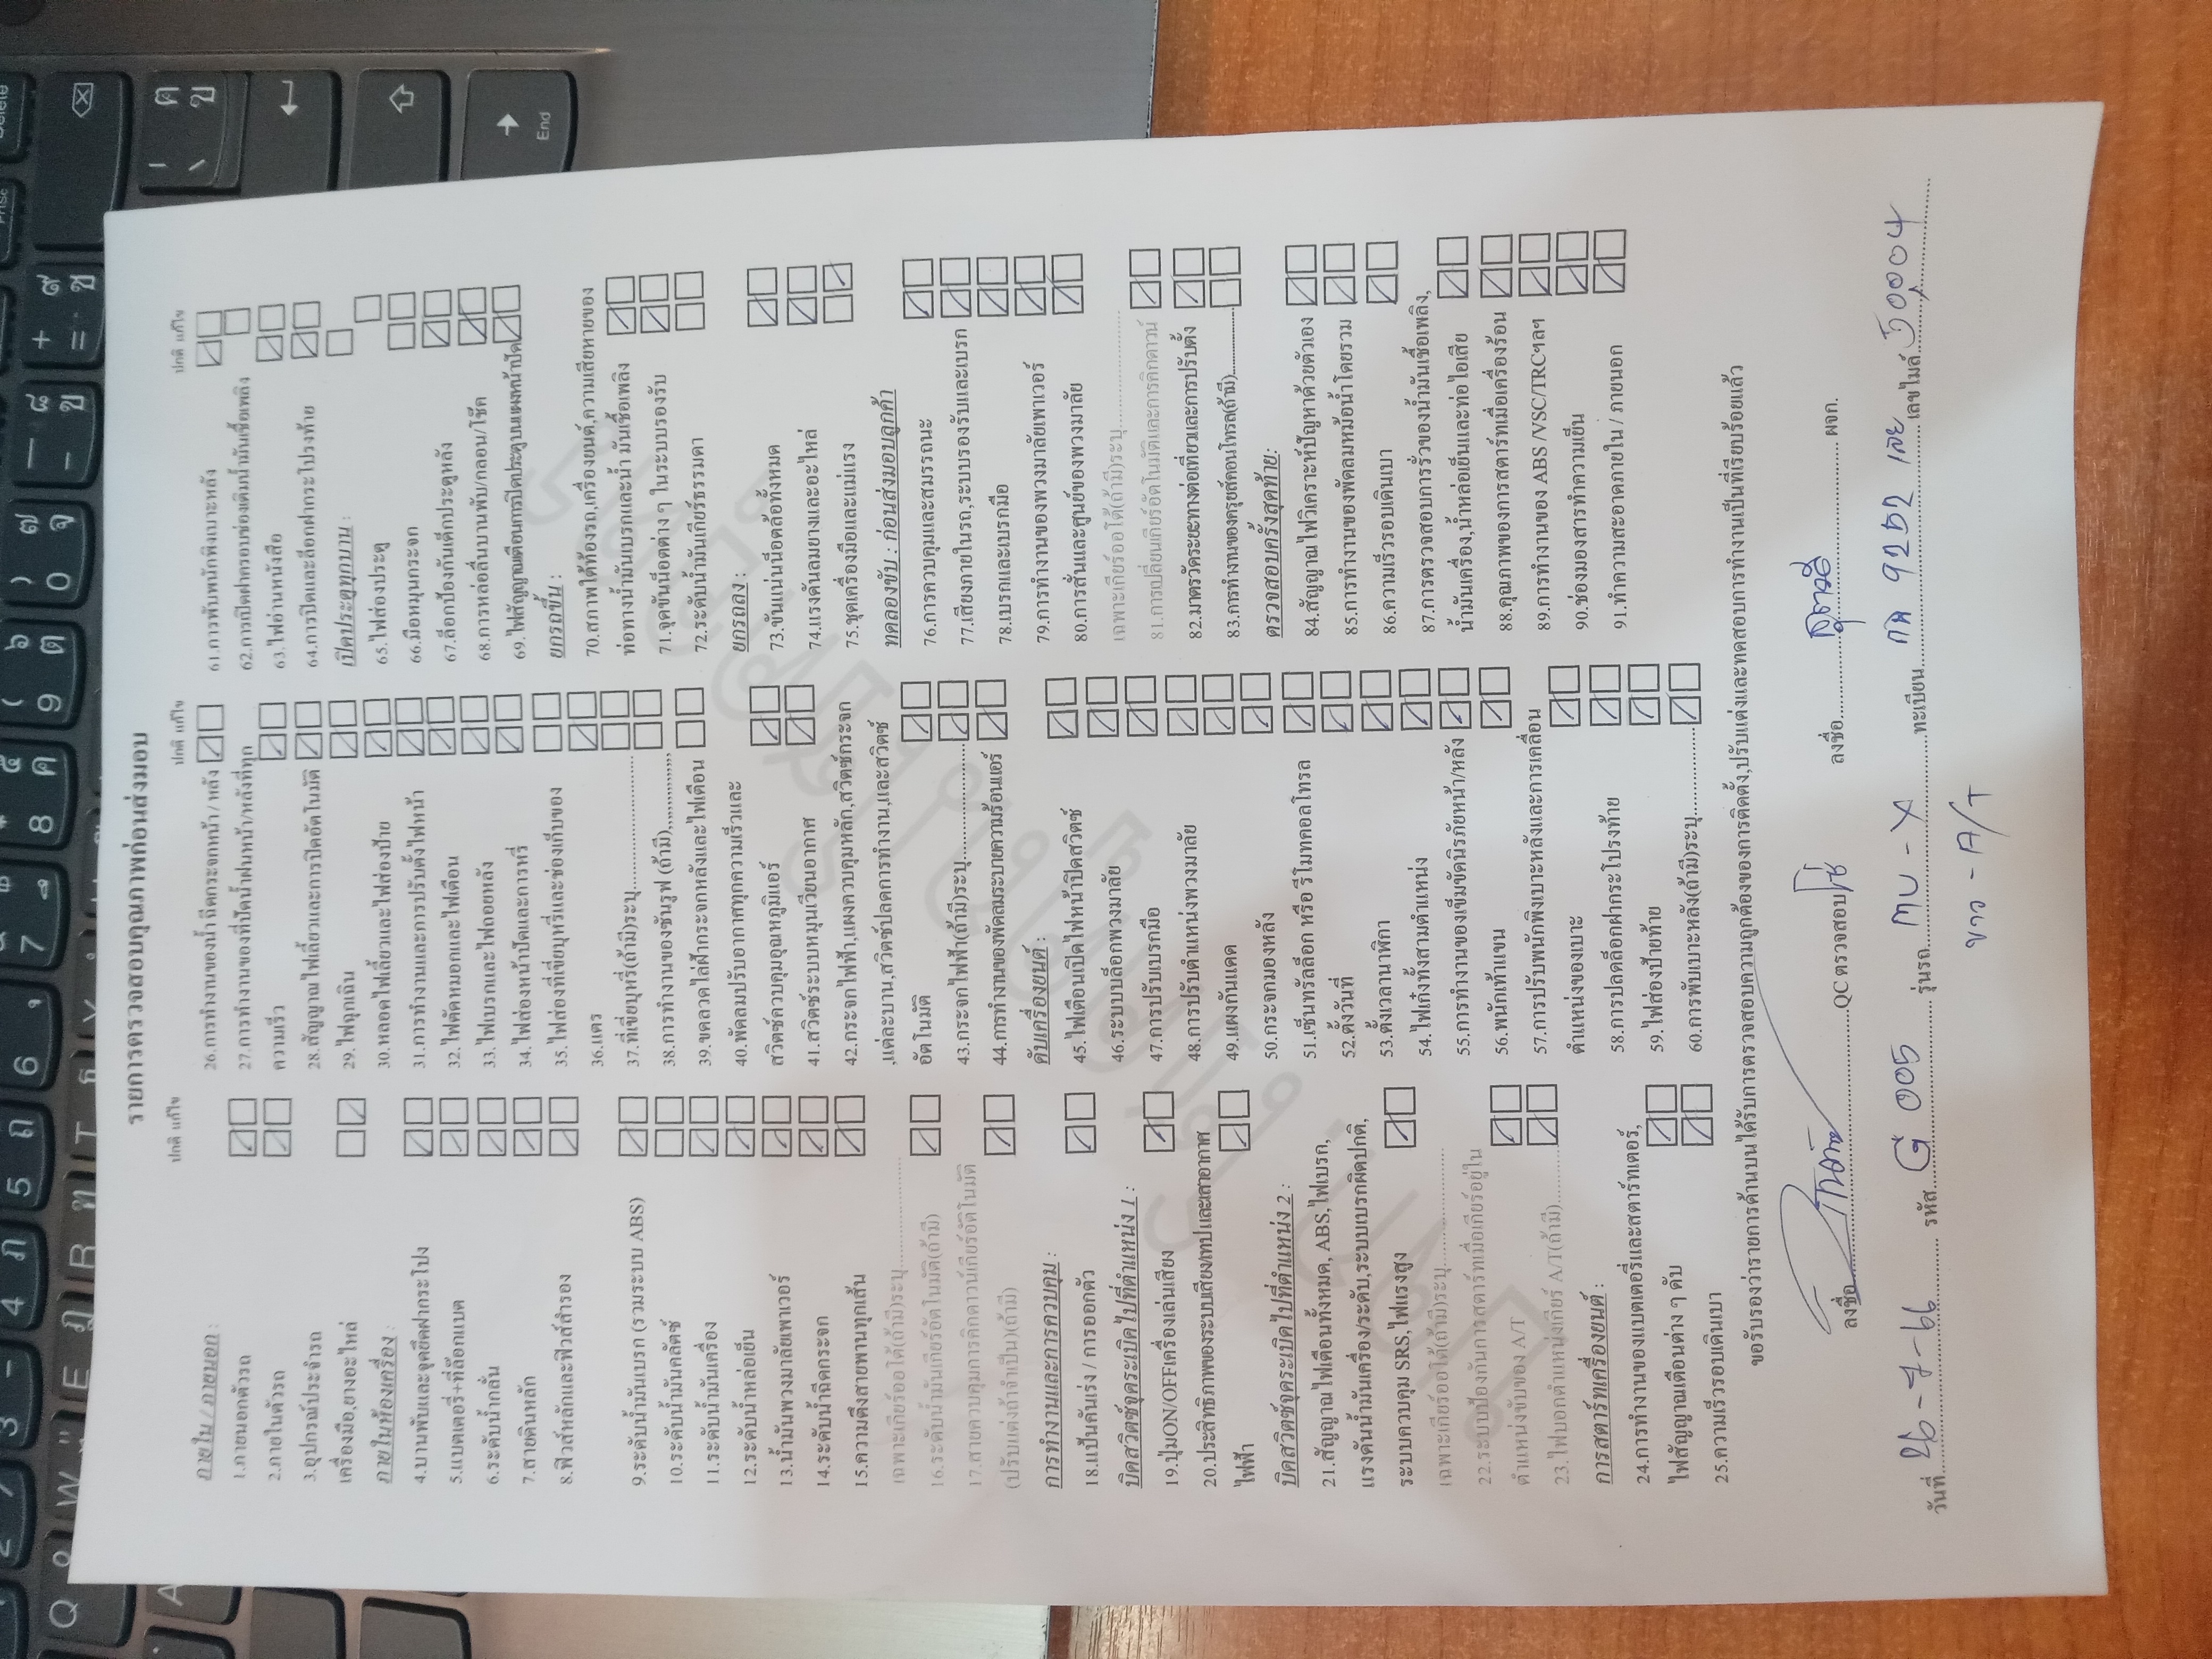 รายการตรวจสอบคุณภาพก่อนส่งมอบ
ปกติ แก้ไข
ภายใน / ภายนอก :
1.ภายนอกตัวรถ
2.ภายในตัวรถ
3.อุปกรณ์ประจำรถ
เครื่องมือ,ยางอะไหล่
ภายในห้องเครื่อง :
4.บานพับและจุดยึดฝากระโปง
5.แบตเตอรี่+ที่ล๊อกแบต
6.ระดับน้ำกลั่น
7.สายดินหลัก
8.ฟิวส์หลักและฟิวส์สำรอง
9.ระดับน้ำมันเบรก (รวมระบบ ABS)
10.ระดับน้ำมันคลัตซ์
11.ระดับน้ำมันเครื่อง
12.ระดับน้ำหล่อเย็น
13.น้ำมันพวงมาลัยเพาเวอร์
14.ระดับน้ำฉีดกระจก
15.ความตึงสายพานทุกเส้น
เฉพาะเกียร์ออโต้(ถ้ามี)ระบุ...............
16.ระดับน้ำมันเกียร์อัตโนมัติ(ถ้ามี)
17.สายควบคุมการคิกดาวน์เกียร์อัตโนมัติ
(ปรับแต่งถ้าจำเป็น)(ถ้ามี)
การทำงานและการควบคุม :
18.แป้นคันเร่ง / การออกตัว
บิดสวิตซ์จุดระเบิดไปที่ตำแหน่ง 1 :
19.ปุ่มON/OFFเครื่องเล่นเสียง
20.ประสิทธิภาพของระบบเสียง/เทปและเสาอากาศ
ไฟฟ้า
บิดสวิตซ์จุดระเบิดไปที่ตำแหน่ง 2 :
21.สัญญาณไฟเตือนทั้งหมด, ABS,ไฟเบรก,
แรงดันน้ำมันเครื่อง/ระดับ,ระบบเบรกผิดปกติ,
ระบบควบคุม SRS,ไฟแรงสูง
เฉพาะเกียร์ออโต้(ถ้ามี)ระบุ...............
22.ระบบป้องกันการสตาร์ทเมื่อเกียร์อยู่ใน
ตำแหน่งขับของ A/T
23.ไฟบอกตำแหน่งเกียร์ A/T(ถ้ามี)..........
การสตาร์ทเครื่องยนต์ :
24.การทำงานของแบตเตอรี่และสตาร์ทเตอร์,
ไฟสัญญาณเตือนต่าง ๆ ดับ
25.ความเร็วรอบเดินเบา
ปกติ แก้ไข
26.การทำงานของน้ำ ถีดกระจกหน้า / หลัง
27.การทำงานของที่ปัดน้ำฝนหน้า/หลังที่ทุก
ความเร็ว
28.สัญญาณไฟเลี้ยวและการปิดอัตโนมัติ
29.ไฟฉุกเฉิน
30.หลอดไฟเลี้ยวและไฟส่องป้าย
31.การทำงานและการปรับตั้งไฟหน้า
32.ไฟตัดหมอกและไฟเตือน
33.ไฟเบรกและไฟถอยหลัง
34.ไฟส่องหน้าปัดและการหรี่
35.ไฟส่องที่เขี่ยบุหรี่และช่องเก็บของ
36.แตร
37.ที่เขี่ยบุหรี่(ถ้ามี)ระบุ...............
38.การทำงานของซันรูฟ (ถ้ามี)..........
39.ขดลวดไล่ฝ้ากระจกหลังและไฟเตือน
40.พัดลมปรับอากาศทุกความเร็วและ
สวิตซ์ควบคุมอุณหภูมิแอร์
41.สวิตซ์ระบบหมุนเวียนอากาศ
42.กระจกไฟฟ้า,แผงควบคุมหลัก,สวิตซ์กระจก
,แต่ละบาน,สวิตซ์ปลดการทำงาน,และสวิตซ์
อัตโนมัติ
43.กระจกไฟฟ้า(ถ้ามี)ระบุ...............
44.การทำงานของพัดลมระบายความร้อนแอร์
ดับเครื่องยนต์ :
45.ไฟเตือนเปิดไฟหน้าปิดสวิตซ์
46.ระบบบล็อกพวงมาลัย
47.การปรับเบรกมือ
48.การปรับตำแหน่งพวงมาลัย
49.แผงกันแดด
50.กระจกมองหลัง
51.เซ็นทรัลล็อก หรือ รีโมทคอลโทรล
52.ตั้งวันที่
53.ตั้งเวลานาฬิกา
54.ไฟเก๋งทั้งสามตำแหน่ง
55.การทำงานของเข็มขัดนิรภัยหน้า/หลัง
56.พนักเท้าแขน
57.การปรับพนักพิงเบาะหลังและการเคลื่อน
ตำแหน่งของเบาะ
58.การปลดล็อกฝากระโปรงท้าย
59.ไฟส่องป้ายท้าย
60.การพับเบาะหลัง(ถ้ามี)ระบุ...............
ปกติ แก้ไข
61.การพับพนักพิงเบาะหลัง
62.การเปิดฝาครอบช่องเติมน้ำมันเชื้อเพลิง
63.ไฟอ่านหนังสือ
64.การปิดและล็อกฝากระโปรงท้าย
เปิดประตูทุกบาน :
65.ไฟส่องประตู
66.มือหมุนกระจก
67.ล็อกป้องกันเด็กประตูหลัง
68.การหล่อลื่นบานพับ/กลอน/โช็ค
69.ไฟสัญญาณเตือนการปิดประตูบนแผงหน้าปัด
ยกรถขึ้น :
70.สภาพใต้ท้องรถ,เครื่องยนต์,ความเสียหายของ
ท่อทางน้ำมันเบรกและน้ำ มันเชื้อเพลิง
71.จุดขันน็อตต่าง ๆ ในระบบรองรับ
72.ระดับน้ำมันเกียร์ธรรมดา
ยกรถลง :
73.ขันแน่นน็อตล้อทั้งหมด
74.แรงดันลมยางและอะไหล่
75.ชุดเครื่องมือและแม่แรง
ทดลองขับ : ก่อนส่งมอบลูกค้า
76.การควบคุมและสมรรถนะ
77.เสียงภายในรถ,ระบบรองรับและเบรก
78.เบรกและเบรกมือ
79.การทำงานของพวงมาลัยเพาเวอร์
80.การสั่นและศูนย์ของพวงมาลัย
เฉพาะเกียร์ออโต้(ถ้ามี)ระบุ...............
81.การเปลี่ยนเกียร์อัตโนมัติและการคิกดาวน์
82.มาตรวัดระยะทางต่อเที่ยวและการปรับตั้ง
83.การทำงานของครุยส์คอนโทรล(ถ้ามี)..........
ตรวจสอบครั้งสุดท้าย:
84.สัญญาณไฟวิเคราะห์ปัญหาด้วยตัวเอง
85.การทำงานของพัดลมหม้อน้ำโดยรวม
86.ความเร็วรอบเดินเบา
87.การตรวจสอบการรั่วของน้ำมันเชื้อเพลิง,
น้ำมันเครื่อง,น้ำหล่อเย็นและท่อไอเสีย
88.คุณภาพของการสตาร์ทเมื่อเครื่องร้อน
89.การทำงานของ ABS /VSC/TRCฯลฯ
90.ช่องมองสารทำความเย็น
91.ทำความสะอาดภายใน / ภายนอก
ขอรับรองว่ารายการด้านบนได้รับการตรวจสอบความถูกต้องของการติดตั้ง,ปรับแต่งและทดสอบการทำงานเป็นที่เรียบร้อยแล้ว
ลงชื่อ..........QC ตรวจสอบ ลงชื่อ.......... ผจก.
วันที่ 26-7-66 รหัส G 005 รุ่นรถ MU - X ทะเบียน กค 9252 เลย เลขไมล์
ขาว - A/T
Delete
PrtSc
End